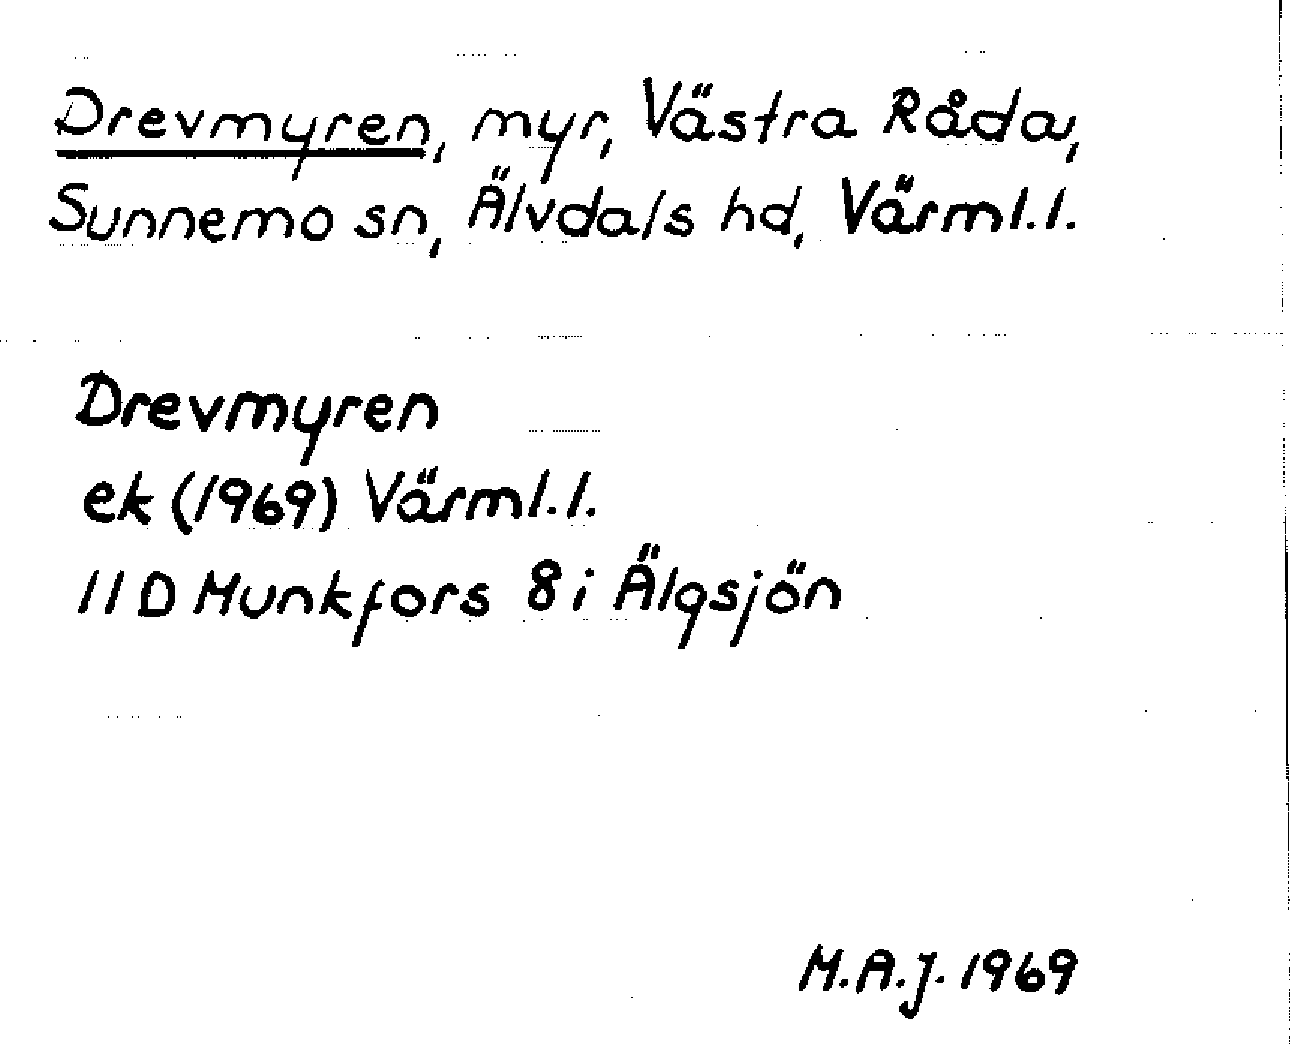 Drevmyren, myr, Västra Råda,
Sunnemo sn, Älvdals hd, Värml.l.
Drevmyren
ek (1969) Värml.l.
11D Munkfors 8i Älgsjön
M.A.J. 1969